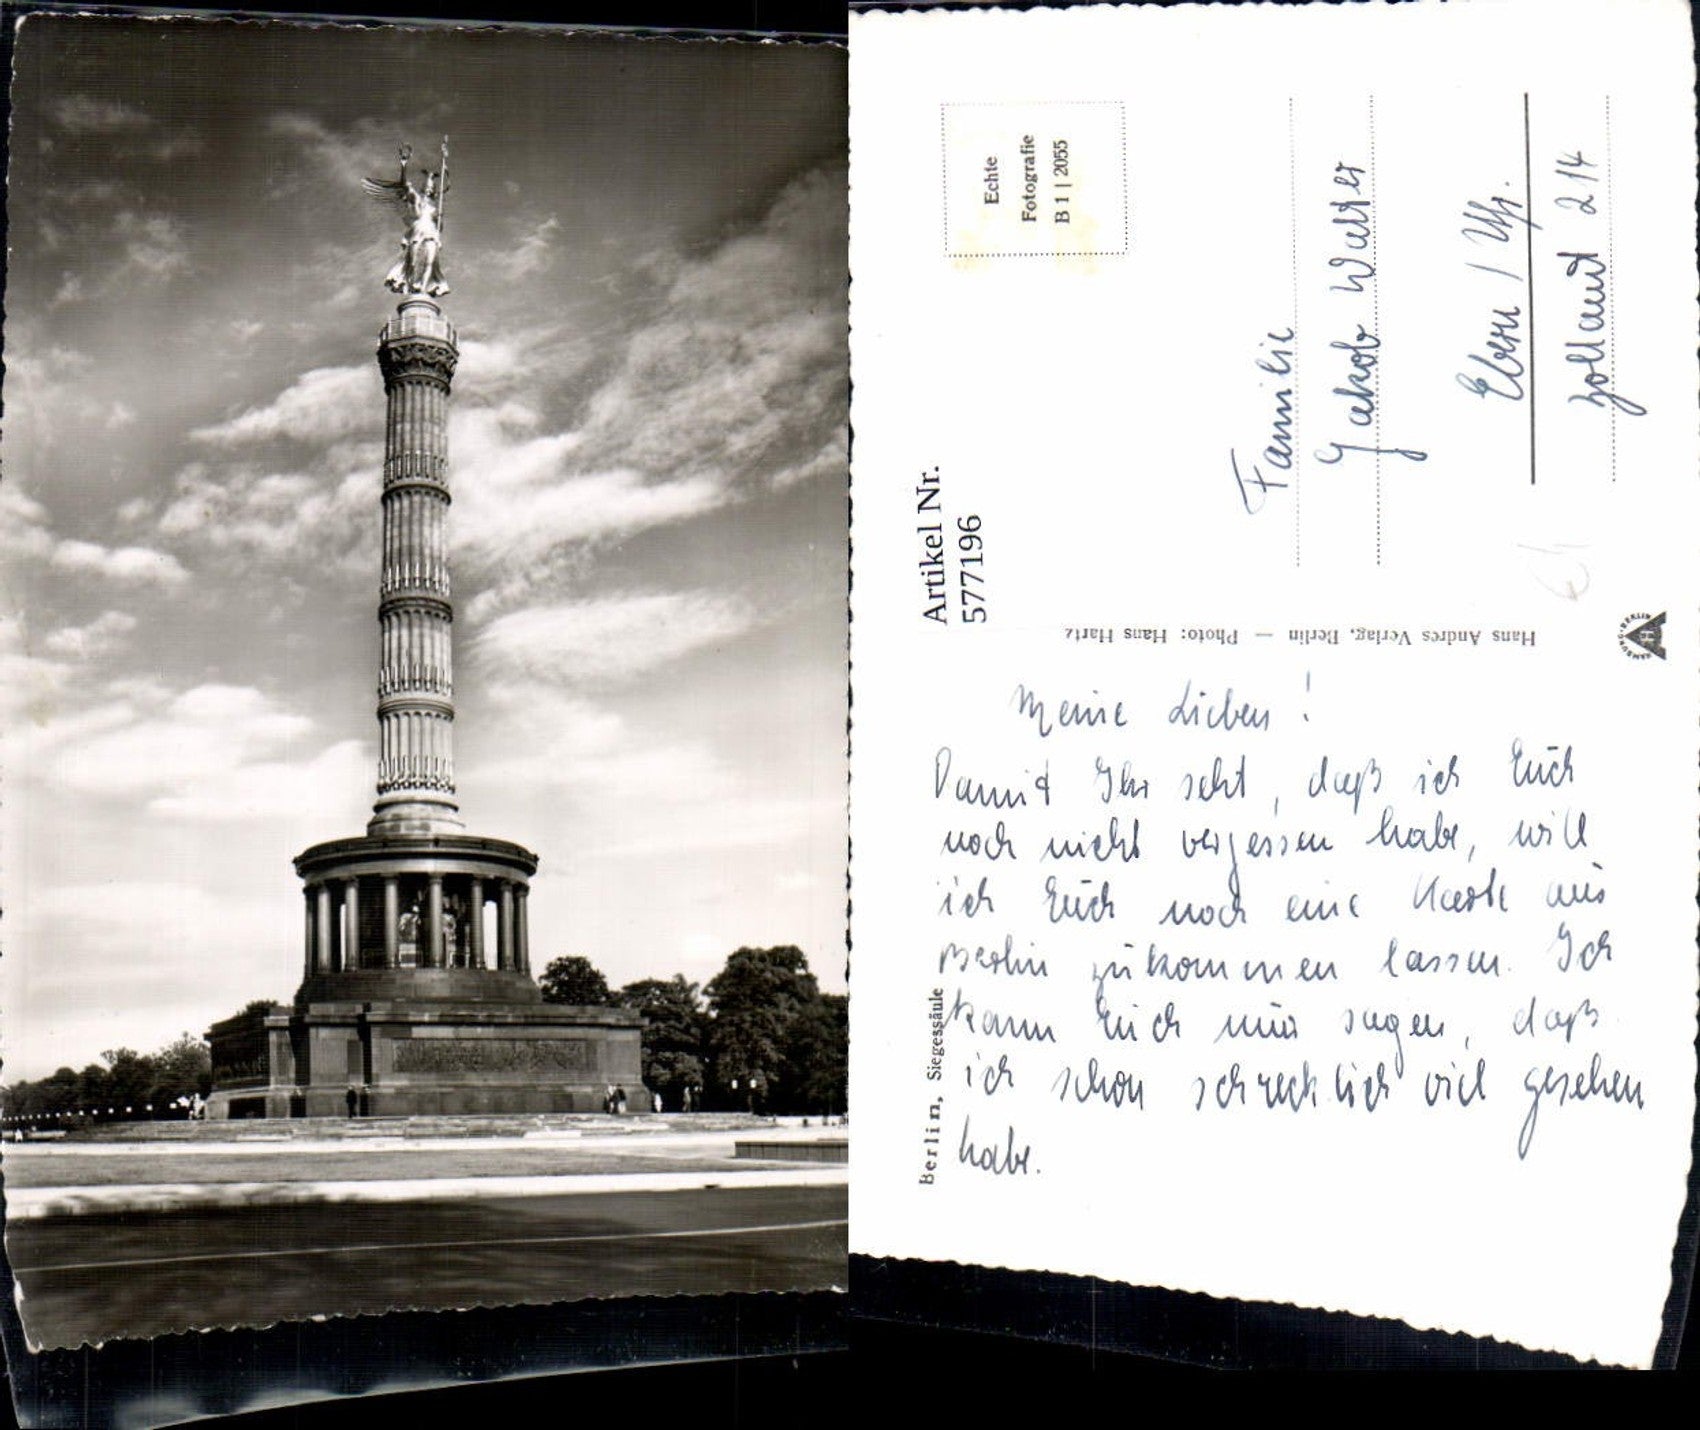 Echte
Fotografie
B 1 | 2055
Artikel Nr.
577196
Familie
Jakob Walter
Ebern / Ufr.
Hans Andres Verlag, Berlin — Photo: Hans Hartz
HAMBURG-BERLIN
Berlin, Siegessäule
Meine Lieben!
Damit Ihr seht, daß ich Euch
noch nicht vergessen habe, will
ich Euch noch eine Karte aus
Berlin zukommen lassen. Ich
kann Euch nur sagen, daß
ich schon schrecklich viel gesehen
habe.